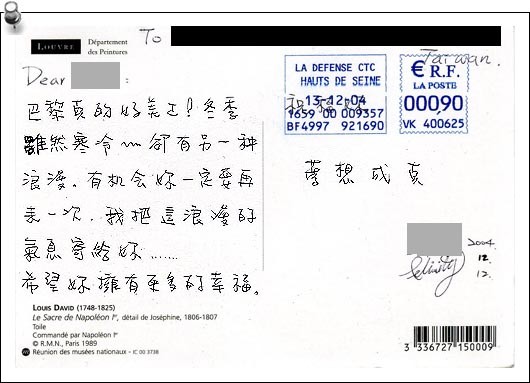 LOUVRE
Département
des Peintures
To
Taiwan.
Dear
:
巴黎真的好美ㄛ!冬季
雖然寒冷~卻有另一种
浪漫。有机会妳一定要再
來一次,我把這浪漫的
氣息寄給妳......
希望妳擁有更多的幸福。
LA DEFENSE CTC
HAUTS DE SEINE
13-12-04
1659 00 009357
BF4997 921690
€ R.F.
LA POSTE
00,90
VK 400625
祝福妳
夢想成真
Felicity
2004.
12.
12.
LOUIS DAVID (1748-1825)
Le Sacre de Napoléon Iᵉʳ, détail de Joséphine, 1806-1807
Toile
Commandé par Napoléon Iᵉʳ
© R.M.N., Paris 1989
Réunion des musées nationaux - IC 00 3738
3 336727 150009